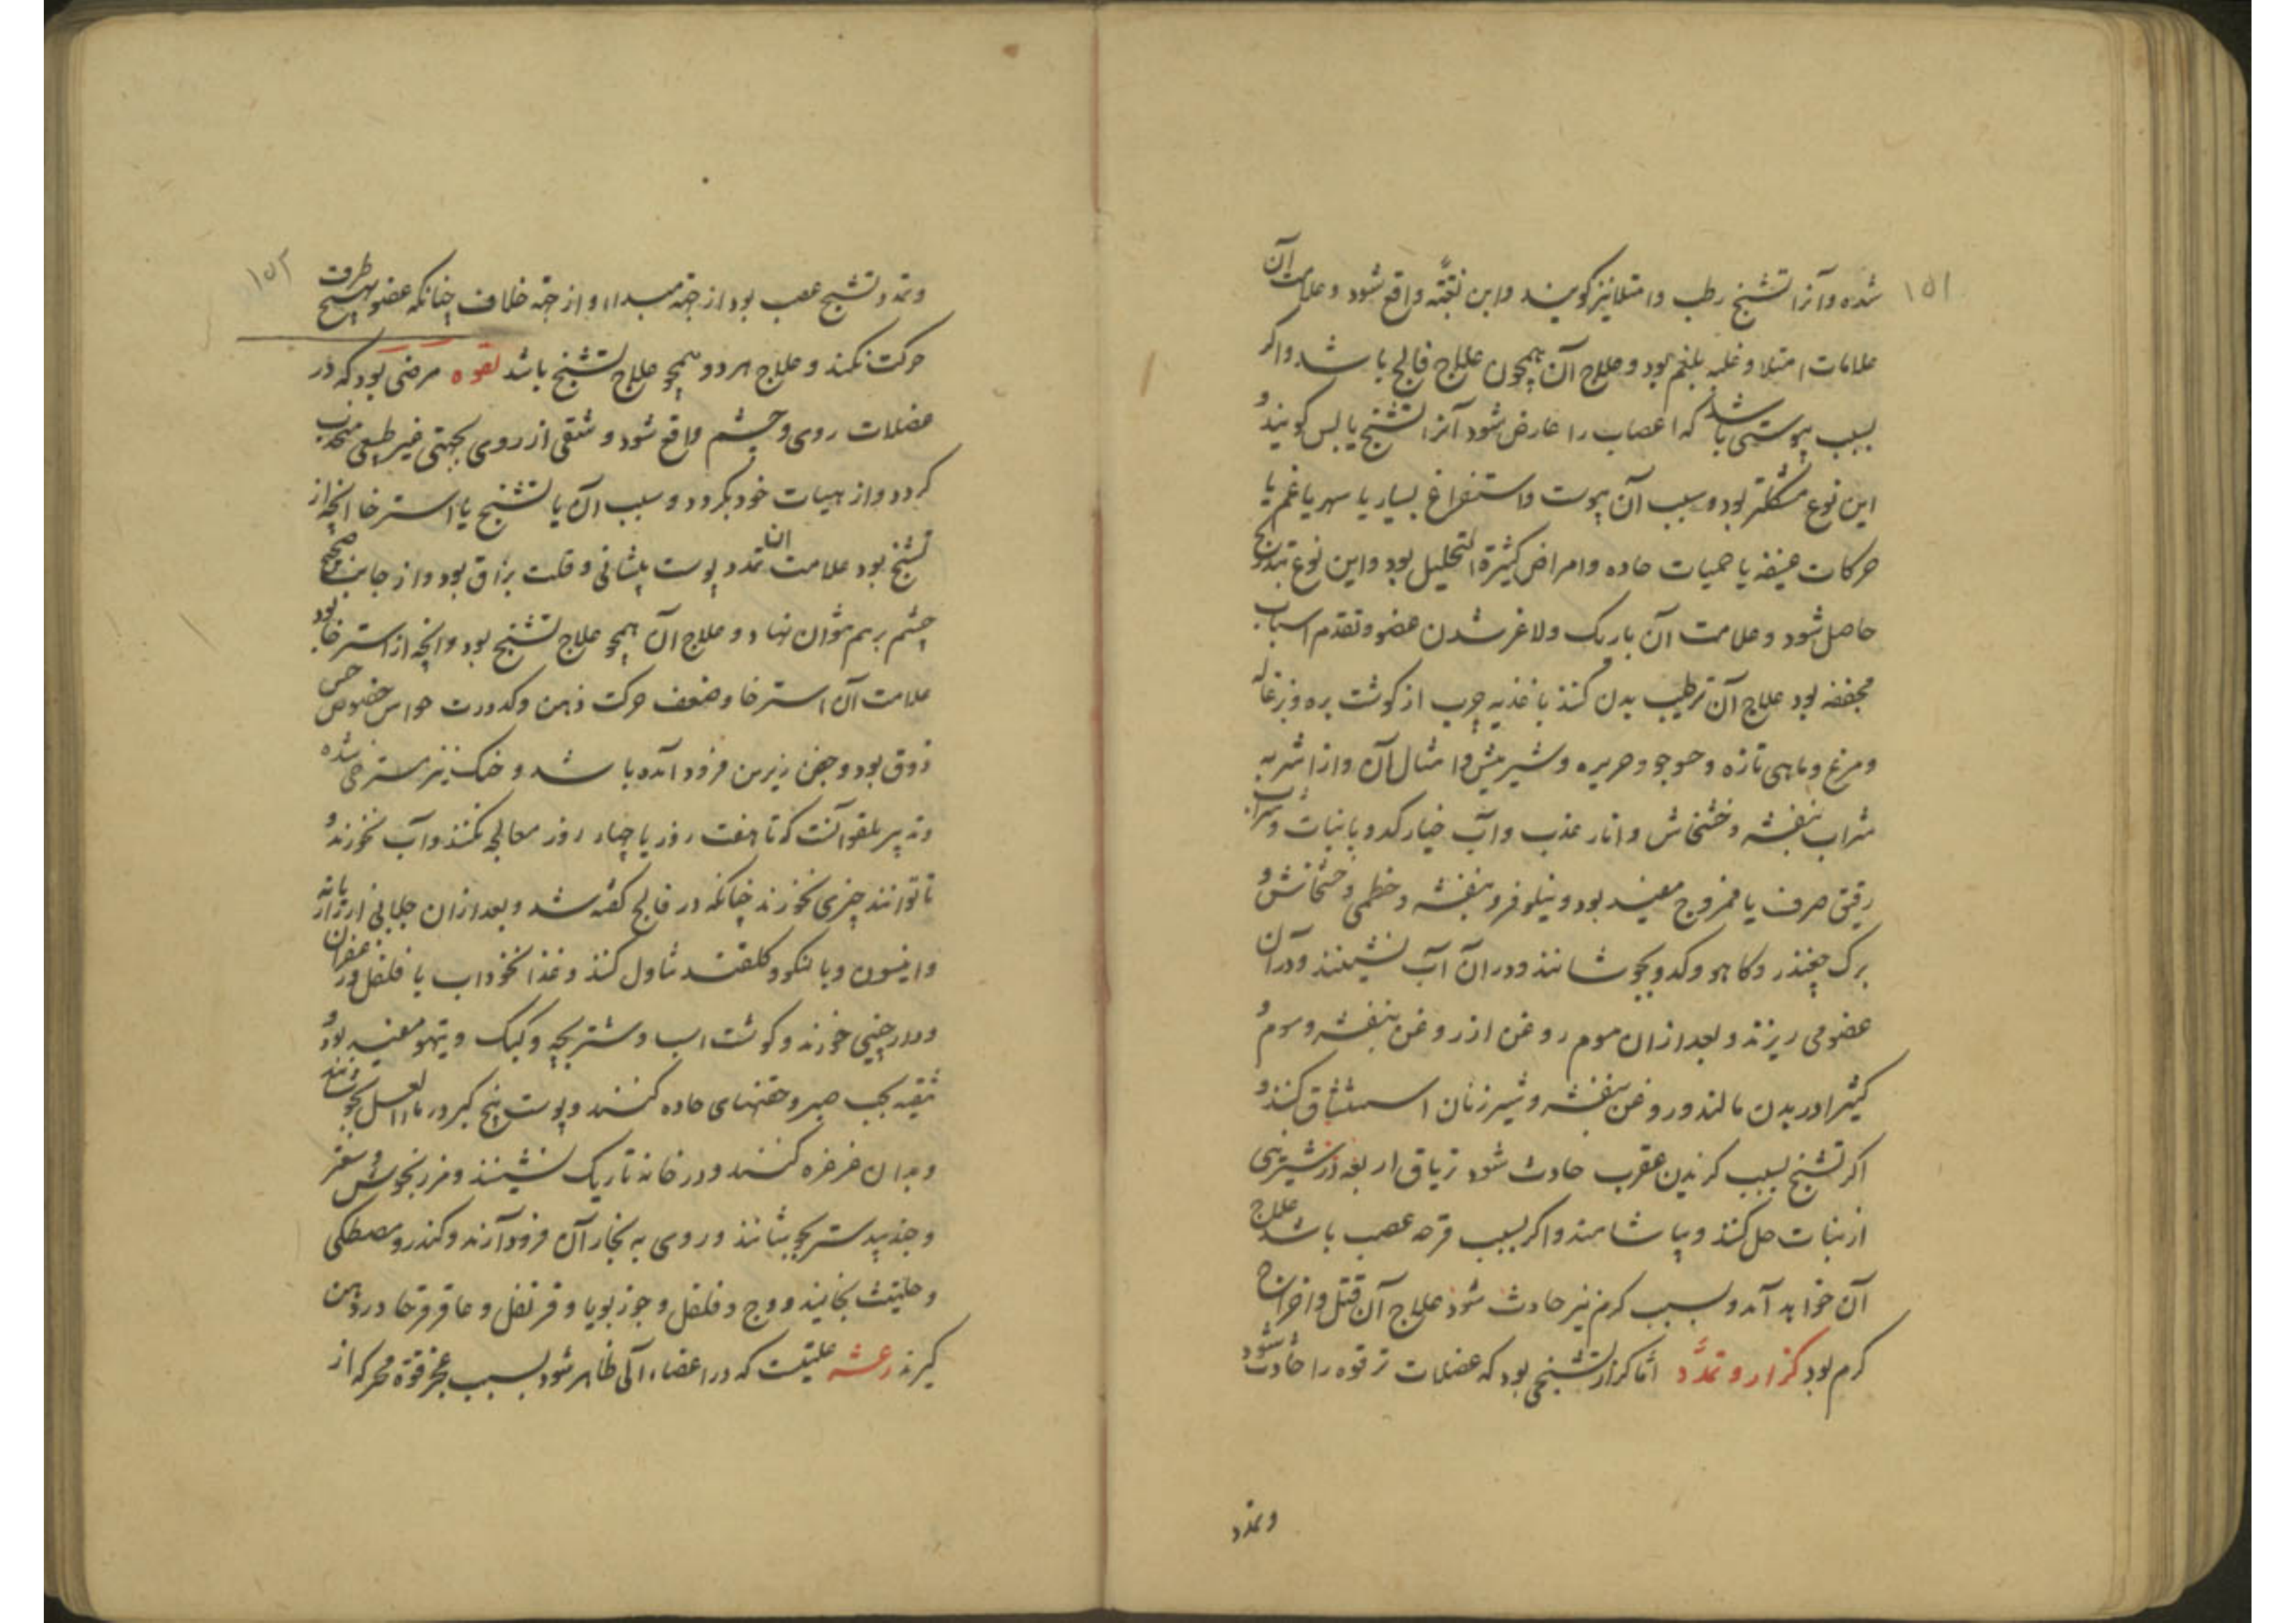 ۱۵۱
شده و آنرا تشنج رطب و امتلا نیز گویند و این بغتّه واقع شود و علامت آن
علامات امتلا و غلبه بلغم بود و علاج آن همچون علاج فالج باشد و اگر
بسبب یبوستی باشد که اعصاب را عارض شود آنرا تشنج یابس گویند و
این نوع مشکلتر بود و سبب آن یبوست و استفراغ بسیار یا سهر یا غم یا
حرکات عنیفه یا حمیات حاده و امراض کثیرة التحلیل بود و این نوع بتدریج
حاصل شود و علامت آن باریک و لاغر شدن عضو و تقدم اسباب
مجففه بود علاج آن ترطیب بدن کنند باغذیه چرب از گوشت بره و بزغاله
و مرغ و ماهی تازه و حوجو و حریره و شیر میش و امثال آن و از اشربه
شراب بنفشه و خشخاش و انار عذب و آب خیار کدو با نبات و شراب
رقیق صرف یا ممزوج مفید بود و نیلوفر و بنفشه و خطمی و خشخاش و
برک چغندر و کاهو و کدو بجوشانند و در آن آب نشینند و در آن
عضو می ریزند و بعد از ان موم روغن از روغن بنفشه و موم و
کثیرا در بدن مالند و روغن بنفشه و شیر زنان استنشاق کنند و
اگر تشنج بسبب گزیدن عقرب حادث شود تریاق اربعه در شیرینی
از نبات حل کنند و بیاشامند و اگر بسبب قرحه عصب باشد علاج
آن خواهد آمد و بسبب کرم نیز حادث شود علاج آن قتل و اخراج
کرم بود کزاز و تمدّد امّا کزاز تشنجی بود که عضلات ترقوه را حادث شود
و تمدد
۱۵۲
و تمدد تشنج عصب بود از جهة مبداء و از جهة خلاف چنانکه عضو بهیچ طرف
حرکت نکند و علاج هر دو همچو علاج تشنج باشد لقوه مرضی بود که در
عضلات روی و چشم واقع شود و شقی از روی بجهتی غیر طبیعی منجذب
گردد و از هیات خود بگردد و سبب آن یا تشنج یا استرخا انچه از
تشنج بود علامت ان تمدد پوست پیشانی و قلت بزاق بود و از جانب صحیح
چشم برهم نتوان نهاد و علاج آن همچو علاج تشنج بود و انچه از استرخا بود
علامت آن استرخا و ضعف حرکت ذهن و کدورت حواس خصوص حس
ذوق بود و جفن زیرین فرود آمده باشد و حنک نیز مسترخی شده
و تدبیر ملقو آنست که تا هفت روز یا چهار روز معالجه نکنند و آب نخورند و
تا توانند چیزی نخورند چنانکه در فالج گفته شد و بعد از ان جلابی از رازیانه
و انیسون و بالنگو و گلقند تناول کنند و غذا نخوداب با فلفل و زعفران
و دارچینی خورند و گوشت اسب و شتر بچه و کبک و تیهو مفید بود و
تنقیه بحب صبر و حقنهای حاده کنند و پوست بیخ کبر در ماء العسل بجوشانند
و بدان غرغره کنند و در خانه تاریک نشینند و مرزنجوش و سعتر
و جندبیدستر بجوشانند و روی به بخار آن فرود آرند و کندر و مصطکی
و حلتیت بخایند و وج و فلفل و جوز بویا و قرنفل و عاقرقرحا در دهن
گیرند رعشه علتیست که در اعضاء آلی ظاهر شود بسبب عجز قوة محرکه از